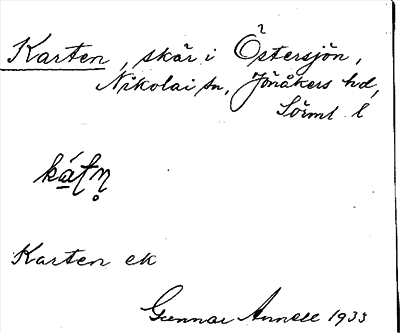 Karten, skär i Östersjön,
Nikolai sn, Jönåkers hd,
Sörml. l
Karten ek
Gunnar Annell 1933